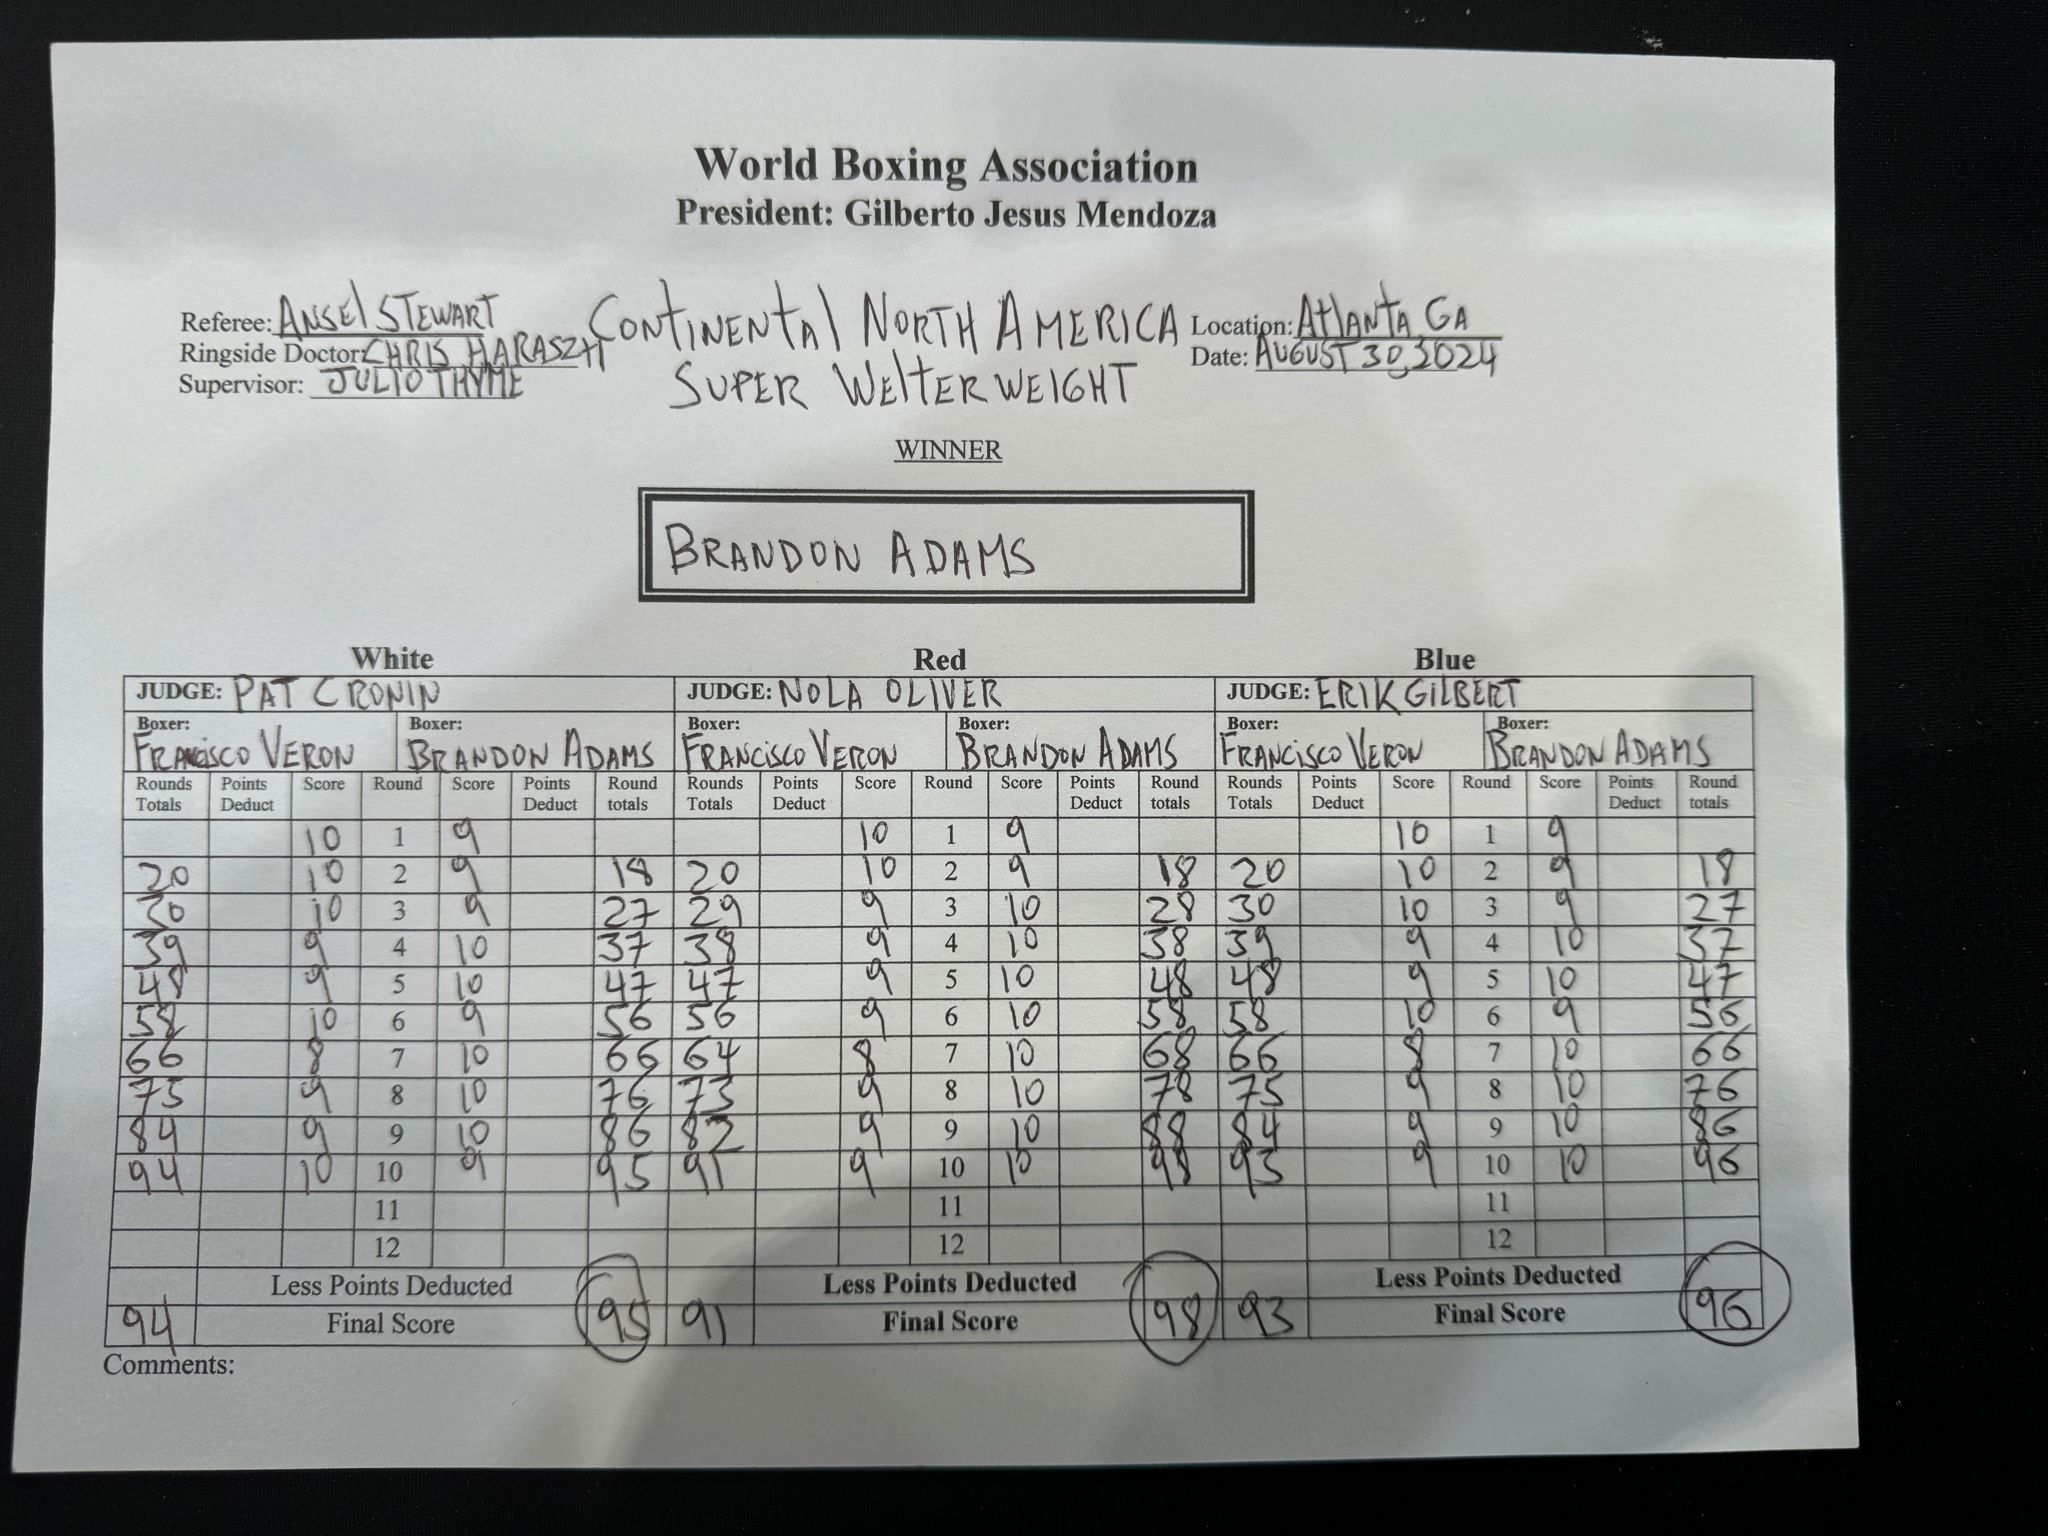 World Boxing Association
President: Gilberto Jesus Mendoza
Referee: ANSEl STEWART
Ringside Doctor: CHRIS HARASZTI
Supervisor: JULIO THYME
CONTINENTAl NORTH AMERICA
SUPER WElTERWEIGHT
Location: AtlANTA, GA
Date: AUGUST 30, 2024
WINNER
BRANDON ADAMS
White Red Blue
JUDGE: PAT CRONIN JUDGE: NOLA OLIVER JUDGE: ERIK GILBERT
Boxer: Boxer: Boxer: Boxer: Boxer: Boxer:
FRANCISCO VERON BRANDON ADAMS FRANCISCO VERON BRANDON ADAMS FRANCISCO VERON BRANDON ADAMS
Rounds Points Score Round Score Points Round Rounds Points Score Round Score Points Round Rounds Points Score Round Score Points Round
Totals Deduct Deduct totals Totals Deduct Deduct totals Totals Deduct Deduct totals
10 1 9 10 1 9 10 1 9
20 10 2 9 18 20 10 2 9 18 20 10 2 9 18
30 10 3 9 27 29 9 3 10 28 30 10 3 9 27
39 9 4 10 37 38 9 4 10 38 39 9 4 10 37
48 9 5 10 47 47 9 5 10 48 48 9 5 10 47
58 10 6 9 56 56 9 6 10 58 58 10 6 9 56
66 8 7 10 66 64 8 7 10 68 66 8 7 10 66
75 9 8 10 76 73 9 8 10 78 75 9 8 10 76
84 9 9 10 86 82 9 9 10 88 84 9 9 10 86
94 10 10 9 95 91 9 10 10 98 93 9 10 10 96
11 11 11
12 12 12
Less Points Deducted Less Points Deducted Less Points Deducted
94 Final Score 95 91 Final Score 98 93 Final Score 96
Comments: